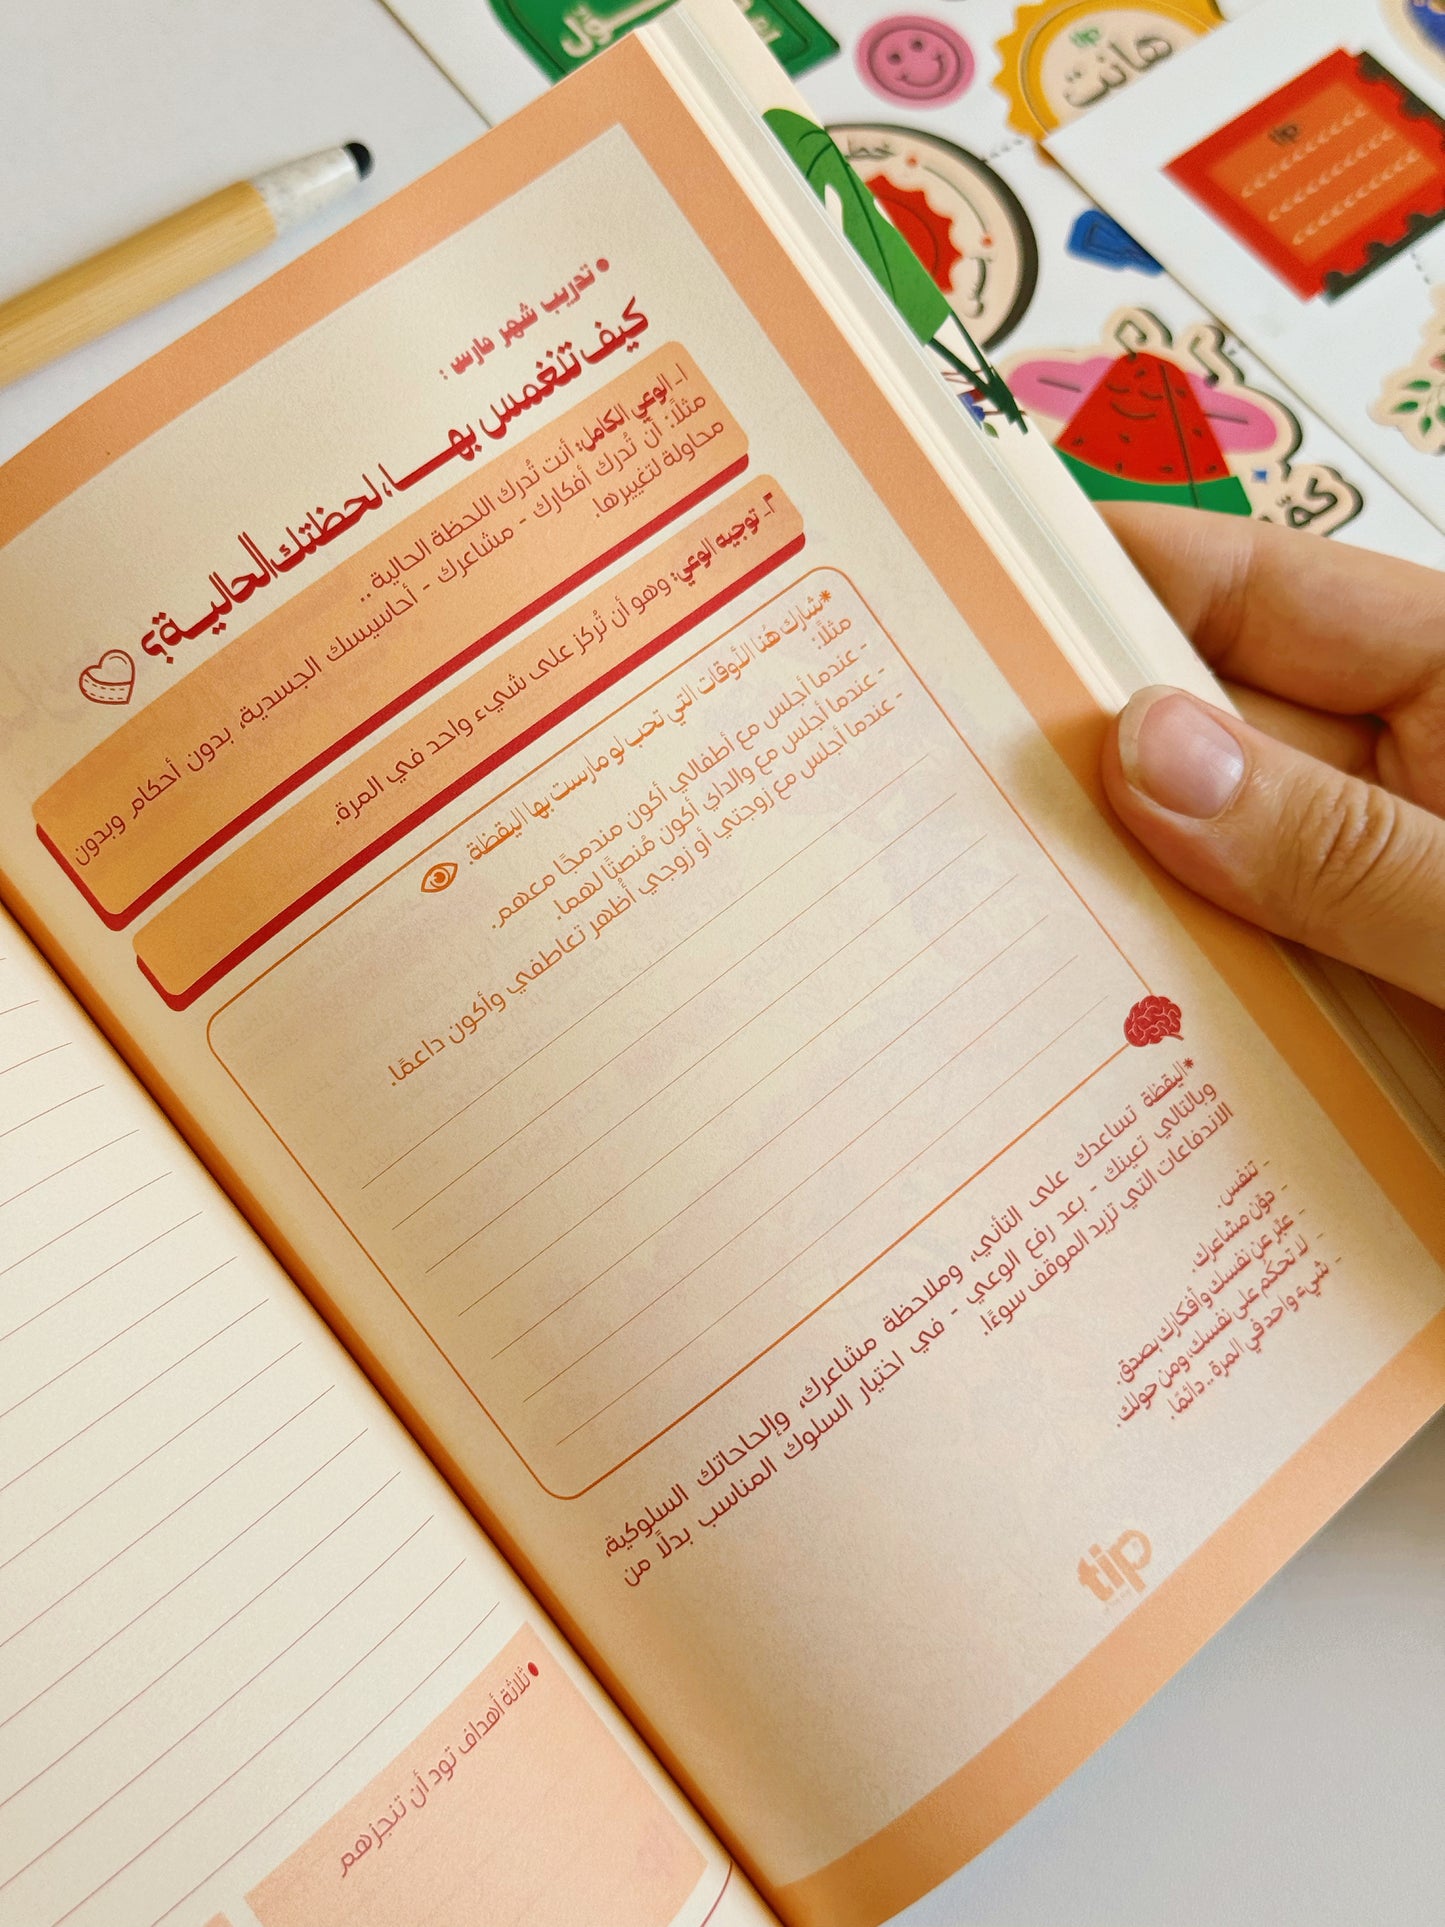 • تدريب شهر مارس :
كيف تنغمس بهـــا، لحظتك الحاليـة؟
١ـ الوعي الكامل: أنت تُدرك اللحظة الحالية ..
مثلًا: أن تُدرك أفكارك - مشاعرك - أحاسيسك الجسدية، بدون أحكام وبدون
محاولة لتغييرها.
٢ـ توجيه الوعي: وهو أن تُركز على شيء واحد في المرة.
*شارك هُنا الأوقات التي تحب لو مارست بها اليقظة.
مثلًا:
- عندما أجلس مع أطفالي أكون مندمجًا معهم.
- عندما أجلس مع والداي أكون مُنصتًا لهما.
- عندما أجلس مع زوجتي أو زوجي أُظهر تعاطفي وأكون داعمًا.
*اليقظة تساعدك على التأني، وملاحظة مشاعرك، وإلحاحاتك السلوكية،
وبالتالي تعينك - بعد رفع الوعي - في اختيار السلوك المناسب بدلًا من
الاندفاعات التي تزيد الموقف سوءًا.
- تنفس.
- دوّن مشاعرك.
- عبّر عن نفسك وأفكارك بصدق.
- لا تحكُم على نفسك، ومن حولك.
- شيء واحد في المرة .. دائمًا.
tip
• ثلاثة أهداف تود أن تنجزهم
tip
هانت
tip